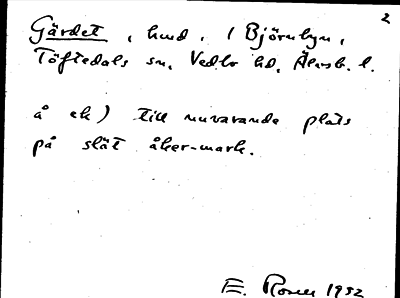 2
Gärdet, hmd, i Björnbyn,
Töftedals sn, Vedbo hd, Älvsb. l.
å ek) till nuvarande plats
på slät åker-mark.
E. Rosell 1932